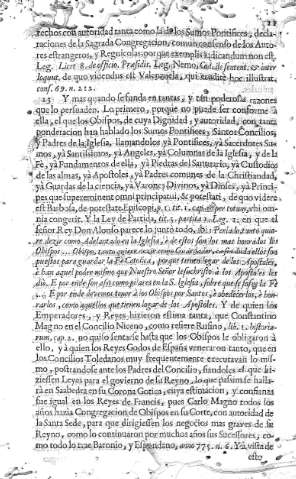 rechos con autoridad tanta como la de los Sumos Pontifices, declaraciones
de la Sagrada Congregacion, comun consenso de los Autores
estrangeros, y Regnicolas; porque exemplis iudicandum non est,
Leg. Licet 8. de offic. Præsidis. Leg. Nemo, Cod. de sentent. & interloquut.
de quo videndus est Valençuela, qui eruditè hoc illustrat,
cons. 69. n. 212.
23 Y mas quando se funda en tantas, y tan poderosas razones
que lo persuaden. Lo primero, porque no puede ser conforme a
ella, el que los Obispos, de cuya Dignidad, y autoridad, con tanta
ponderacion han hablado los Sumos Pontifices, Santos Concilios,
y Padres de la Iglesia, llamandolos yà Pontifices, yà Sacerdotes Sumos,
yà Santissimos, yà Angeles, yà Columnas de la Iglesia, y de la
Fè, yà Fundamentos de ella, yà Piedras del Santuario, yà Custodios
de las almas, yà Apostoles, yà Padres comunes de la Christiandad,
yà Guardas de la ciencia, yà Varones Divinos, yà Dioses, yà Principes
que supereminent omni principatui, & potestati, de quo videre
est Barbosa, de potestate Episcopi, 1. tit. 1. cap. per totum, vbi omnia
congerit. Y la Ley de Partida, tit. 5. partida 1. Leg. 2. en que el
señor Rey Don Alonso parece lo juntò todo, ibi:
puestos para guardar la Fè Catolica, porque tienen lugar de los Apostoles,
è han aquel poder mismo que Nuestro Señor Iesu Christo à los Apostoles les
diò. E por ende son assi como pilares en la S. Iglesia, sobre que se sufre la Fè
E por ende deven ser honrar à los Obispos por Santos, è obedecerlos, è honrarlos,
como aquellos que tienen lugar de los Apostoles. Y de quien los
Emperadores, y Reyes hizieron estima tanta, que Constantino
Magno en el Concilio Niceno, como refiere Rufino, lib. 1. historiarum,
cap. 2. no quiso sentarse hasta que los Obispos le obligaron à
ello, y à quien los Reyes Godos de España veneraron tanto, que en
los Concilios Toledanos muy frequentemente executavan lo mismo,
postrandose ante los Padres del Concilio, fiandoles el que hiziessen
Leyes para el govierno de su Reyno, lo que passim se hallarà
en Saabedra en su Corona Gotica, cuya estimacion, y confiança
fue igual en los Reyes de Francia, pues Carlo Magno todos los
años hazia Congregacion de Obispos en su Corte, con autoridad de
la Santa Sede, para que dirigiessen los negocios mas graves de su
Reyno, como lo continuaron por muchos años sus Sucessores, como
todo lo trae Baronio, y Espondano, anno 775. n. 6. Y à vista de
esto